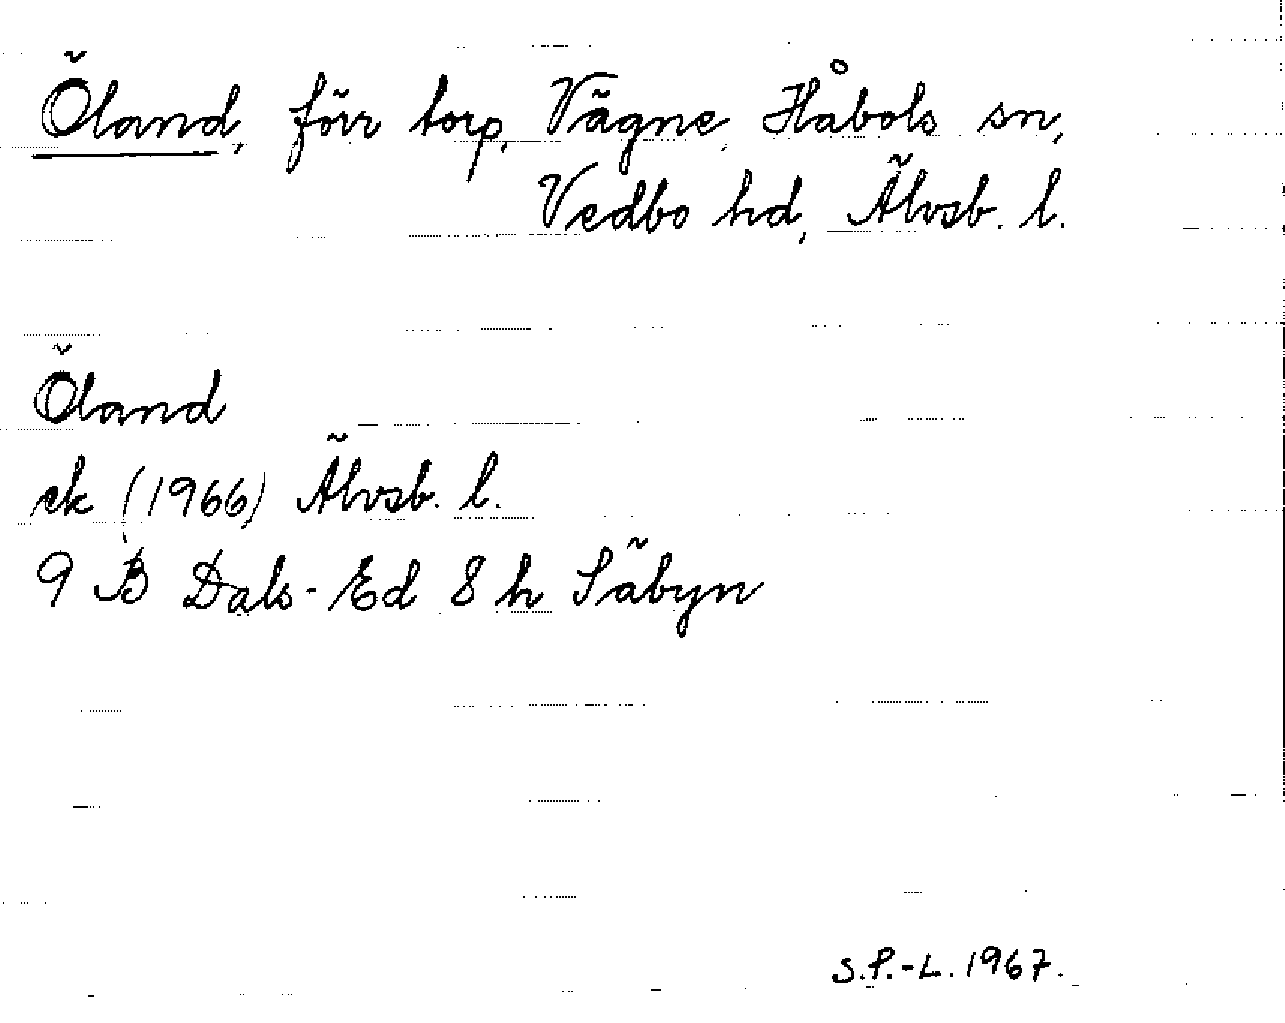 Öland, förr torp, Vägne, Håbols sn,
Vedbo hd, Älvsb. l.
Öland
ek (1966) Älvsb. l.
9 B Dals-Ed 8 h Säbyn
S.P.-L. 1967.